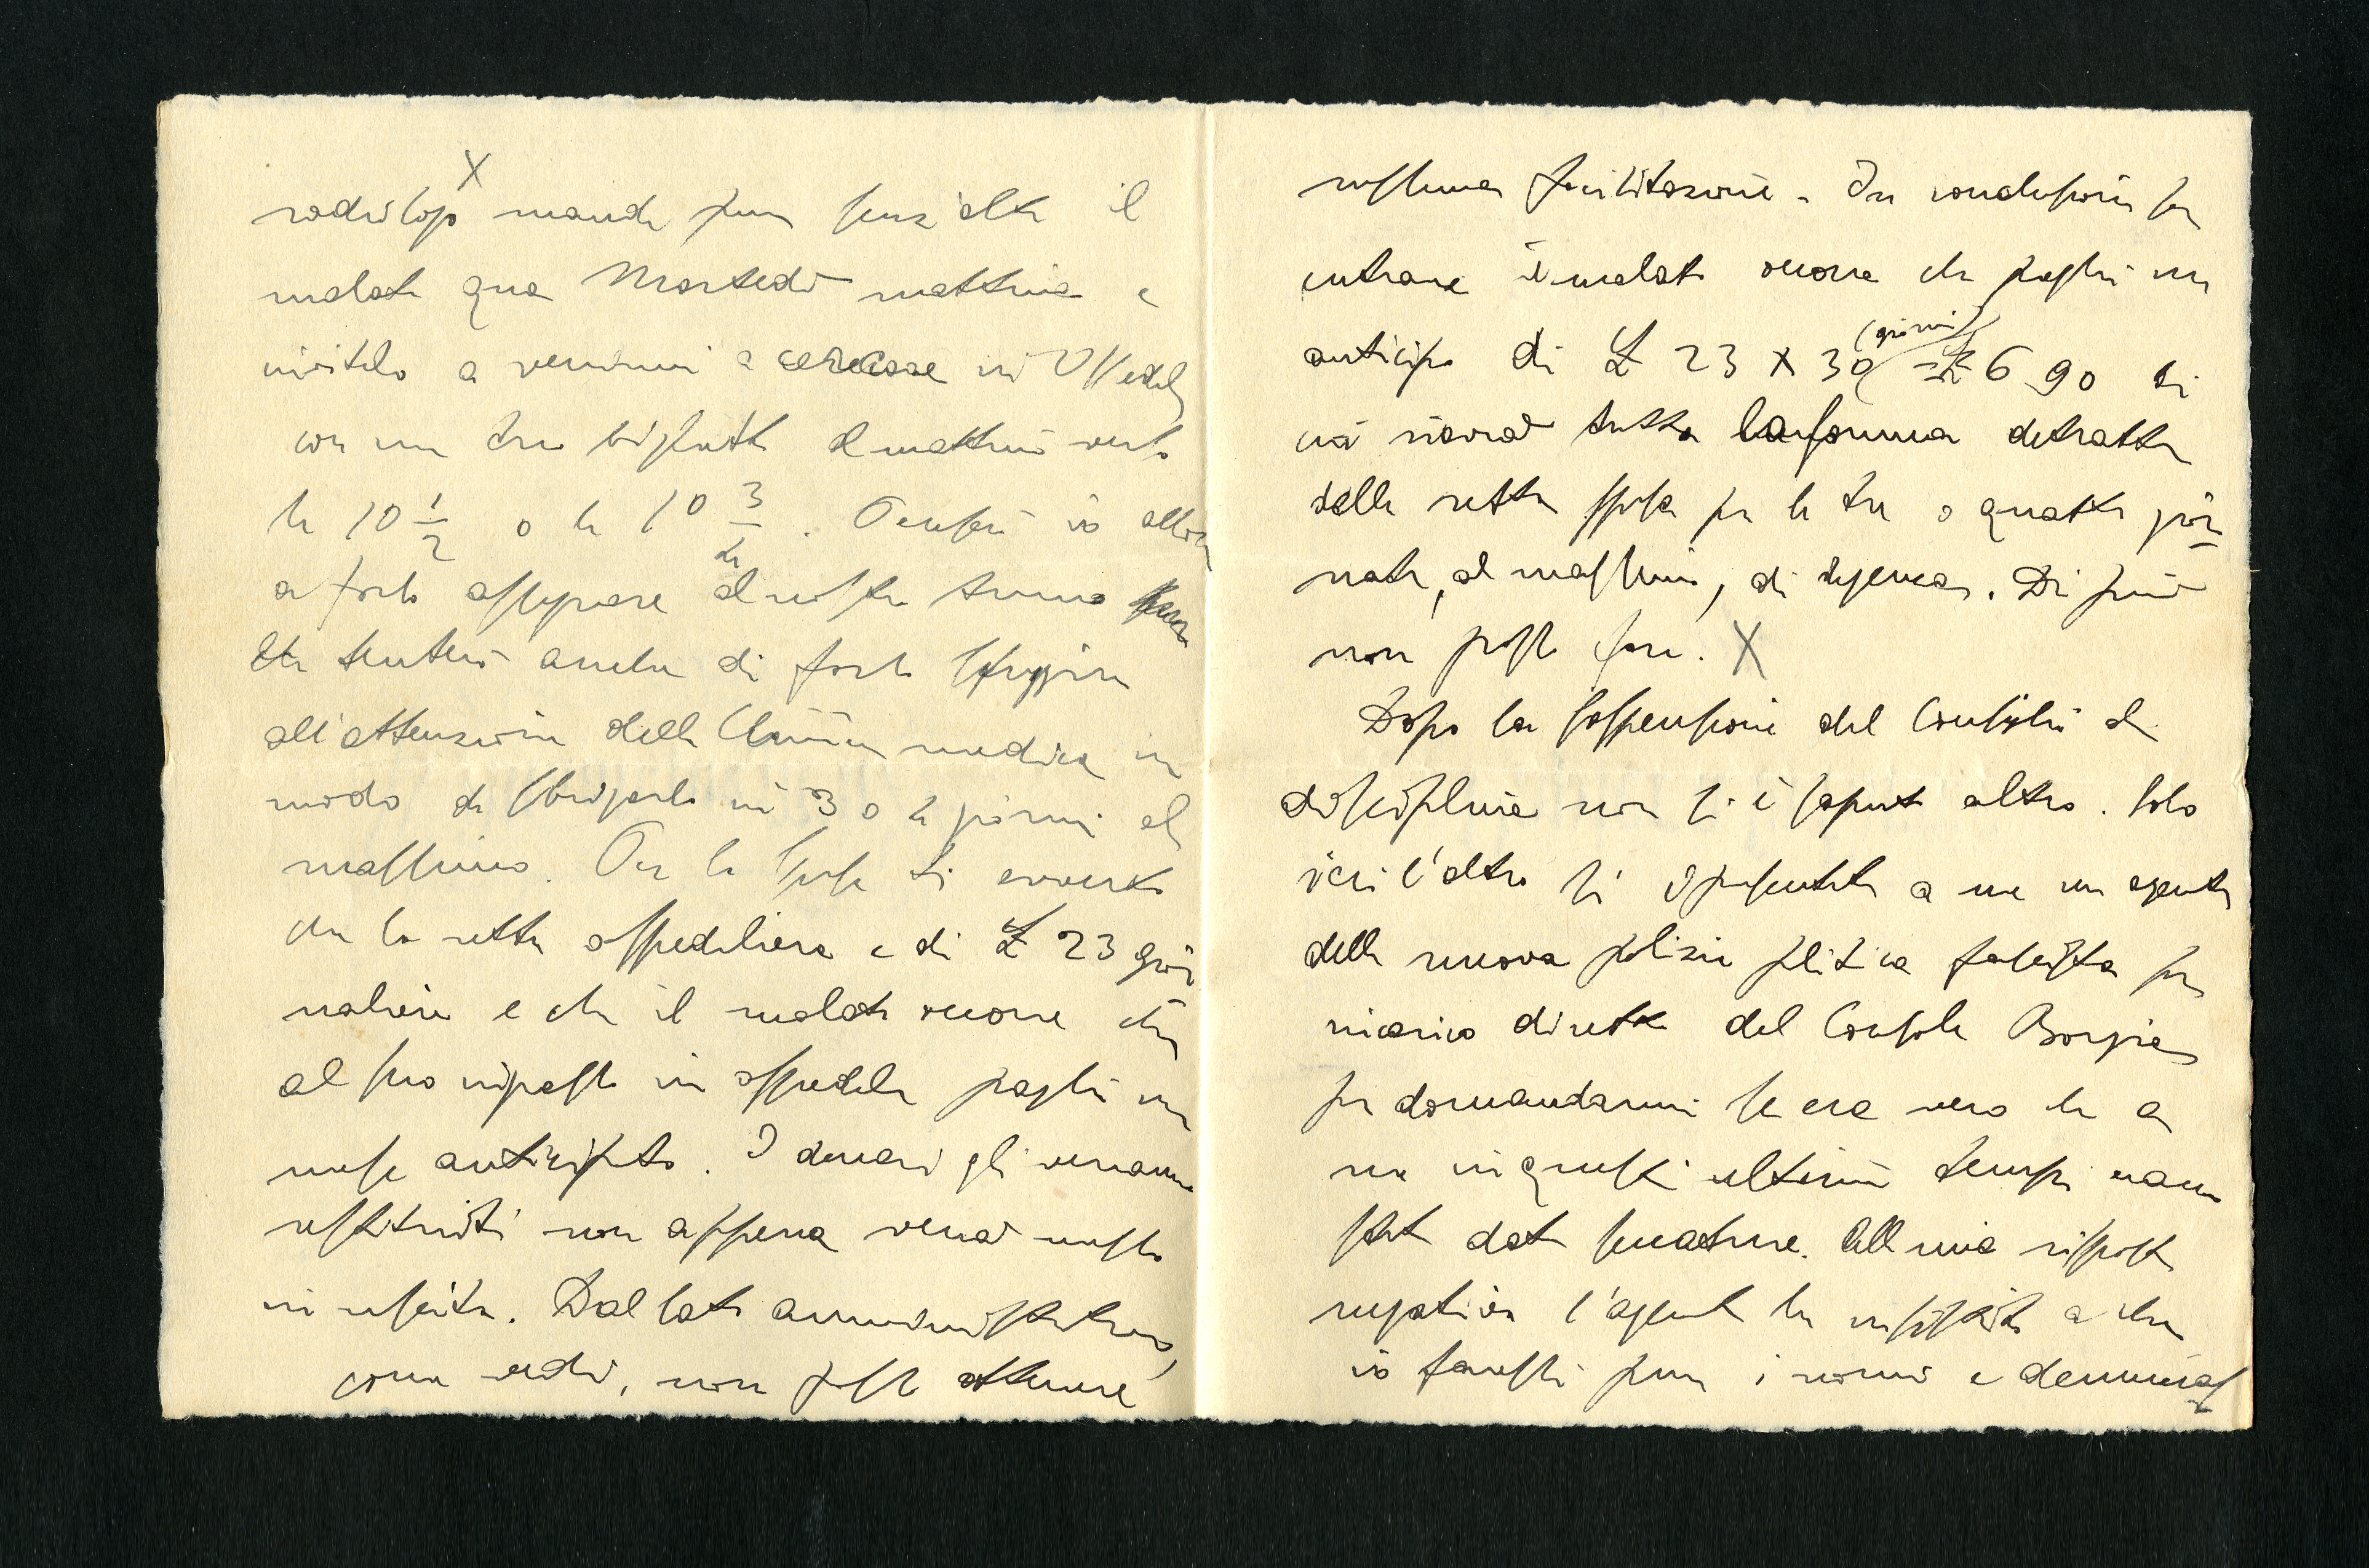 X
radiologo manda pure senz'altro il
malato qua Martedì mattina e
invitalo a venirmi a cercare in Ospedale
con un tuo biglietto al mattino verso
le 10 1/2 o le 10 3/4. Penserò io allora
a farlo assegnare al nostro turno
tenterò anche di farlo sfuggire
all'attenzione della Clinica medica in
modo da sbrigarlo in 3 o 4 giorni al
massimo. Per le spese ti avverto
che la retta ospedaliera è di £ 23 gior
naliere e che il malato occorre che
al suo ingresso in ospedale paghi un
mese anticipato. I denari gli verranno
restituiti non appena verrà messo
in uscita. Dal lato amministrativo,
come vedi, non posso ottenere
nessuna facilitazione. In conclusione per
entrare il malato occorre che paghi un
(giorni)
anticipo di £ 23 X 30 = £ 690 di
cui riavrà tutta la somma detratta
della retta spesa per le tre o quattro gior
nate, al massimo, di degenza. Di più
non posso fare. X
Dopo la sospensione del Consiglio di
disciplina non si è saputo altro. Solo
ieri l'altro si è presentato a me un agente
della nuova polizia politica fascista per
incarico diretto del Console Borgia
per domandarmi se era vero che a
me in questi ultimi tempi erano
state date seccature. Alla mia risposta
negativa l'agente ha insistito a che
io facessi pure i nomi e denunciassi